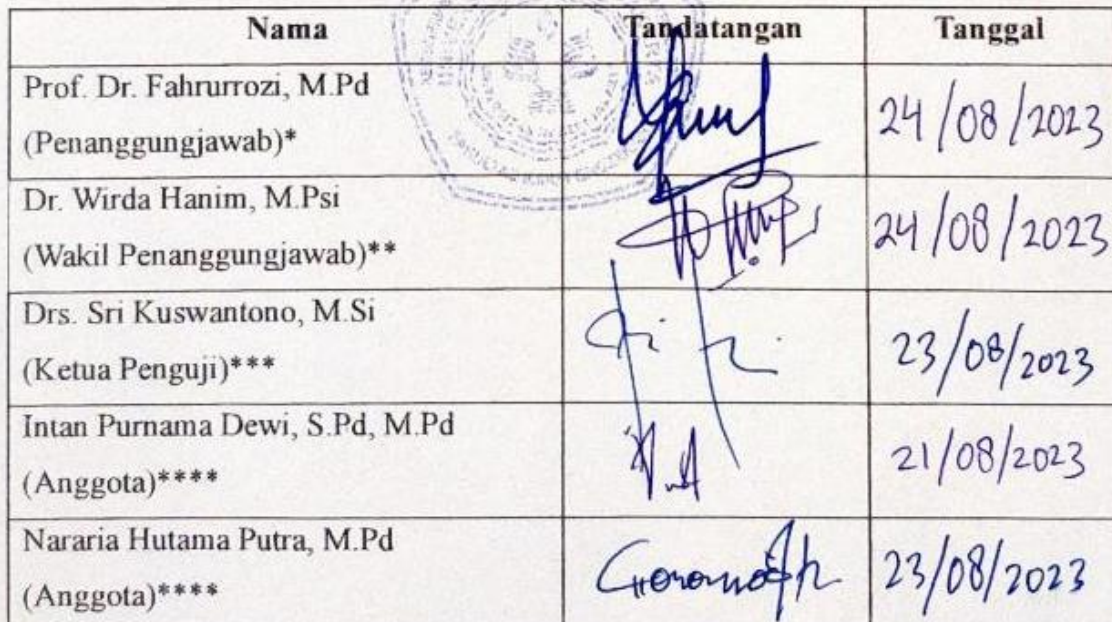 Nama Tandatangan Tanggal
Prof. Dr. Fahrurrozi, M.Pd
(Penanggungjawab)*
24/08/2023
Dr. Wirda Hanim, M.Psi
(Wakil Penanggungjawab)**
24/08/2023
Drs. Sri Kuswantono, M.Si
(Ketua Penguji)***
23/08/2023
Intan Purnama Dewi, S.Pd, M.Pd
(Anggota)****
21/08/2023
Nararia Hutama Putra, M.Pd
(Anggota)****
23/08/2023